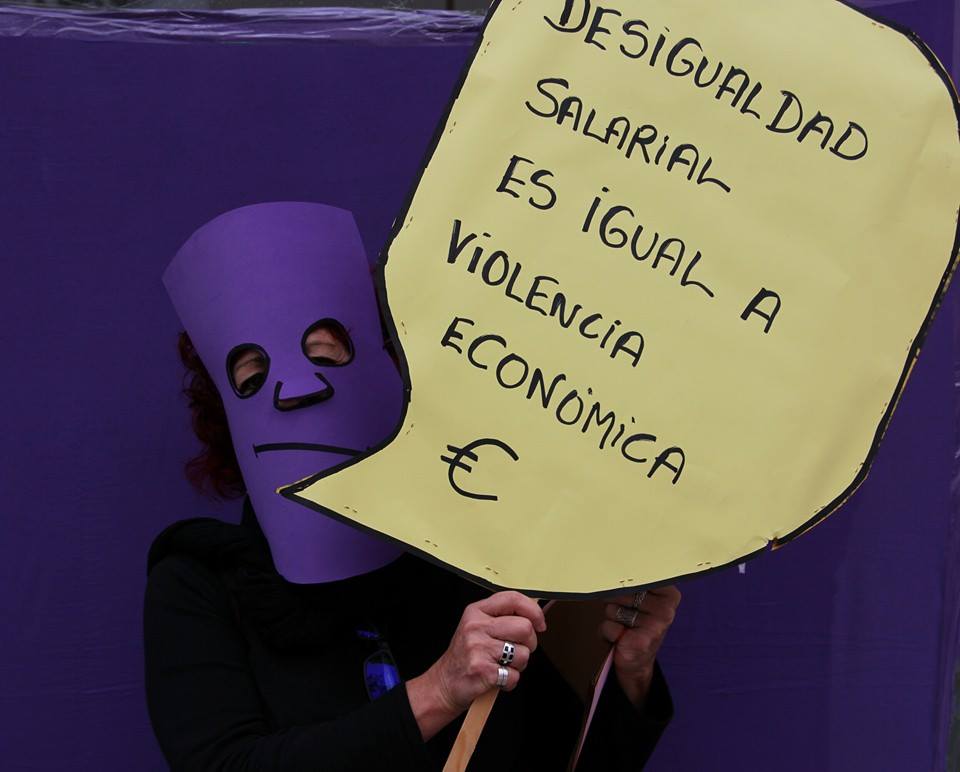 DESiGUALDAD
SALARiAL
ES iGUAL A
ViOLENCiA
ECONÓMiCA
€